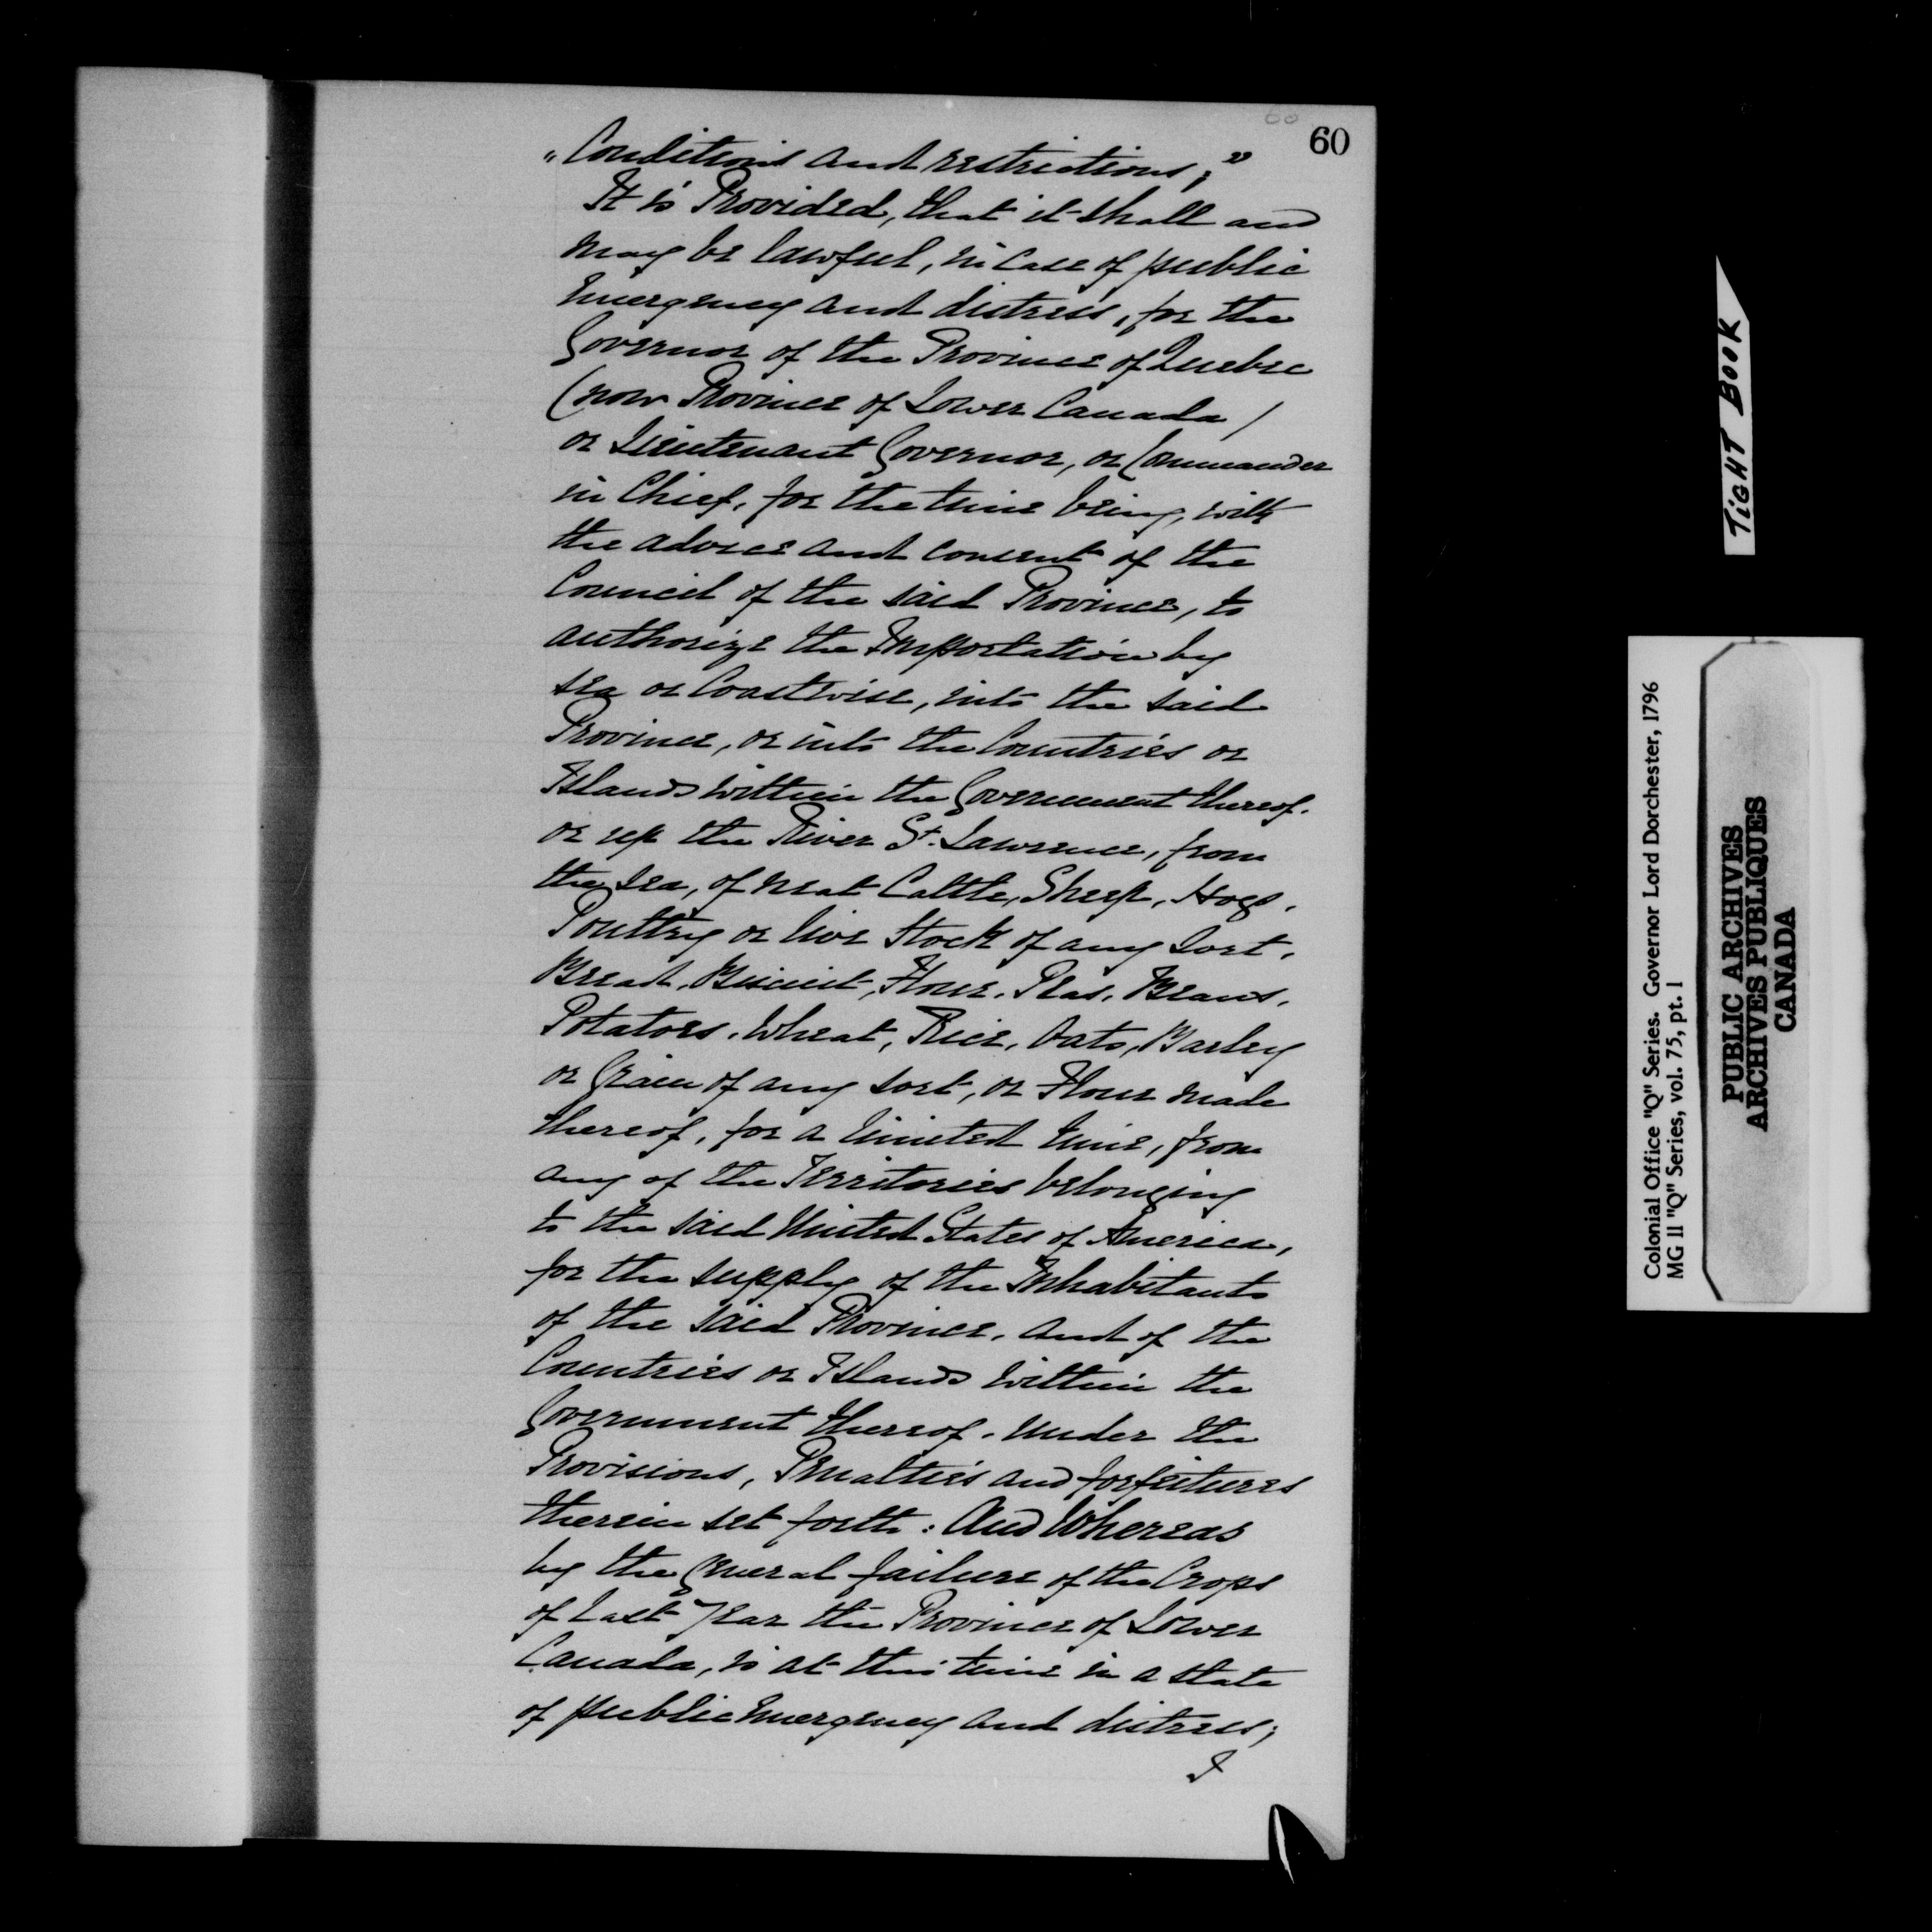 60
60
"Conditions and restrictions;"
It is Provided, that it shall and
may be lawful, in case of public
Emergency and distress, for the
Governor of the Province of Quebec
(now Province of Lower Canada)
or Lieutenant Governor, or Commander
in Chief, for the time being, with
the advice and consent of the
Council of the said Province, to
authorize the Importation by
sea or Coastwise, into the said
Province, or into the Countries or
Islands within the Government thereof.
or up the River St. Lawrence, from
the sea, of neat Cattle, Sheep, Hogs,
Poultry or live Stock of any Sort,
Bread, Biscuit, Flour, Peas, Beans,
Potatoes, Wheat, Rice, Oats, Barley
or Grain of any sort, or Flour made
thereof, for a limited time, from
any of the Territories belonging
to the said United States of America,
for the supply of the Inhabitants
of the said Province, and of the
Countries or Islands within the
Government thereof. under the
Provisions, Penalties and forfeitures
therein set forth: And Whereas
by the general failure of the Crops
of last Year the Province of Lower
Canada, is at this time in a state
of public Emergency and distress;
I
TIGHT BOOK
Colonial Office "Q" Series. Governor Lord Dorchester, 1796
MG 11 "Q" Series, vol. 75, pt. 1
PUBLIC ARCHIVES
ARCHIVES PUBLIQUES
CANADA